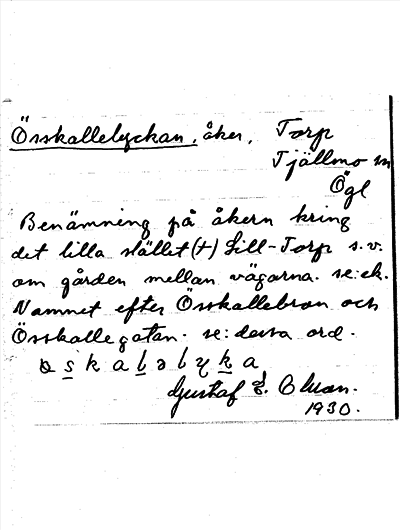 Össkallelyckan, åker, Torp
Tjällmo sn
Ögl
Benämning på åkern kring
det lilla stället (+) Lill-Torp s.v.
om gården mellan vägarna. se: ek.
Namnet efter Össkallebron och
Össkallegatan. se: dessa ord.
skaləlyka
Gustaf E. Olsson.
1930.